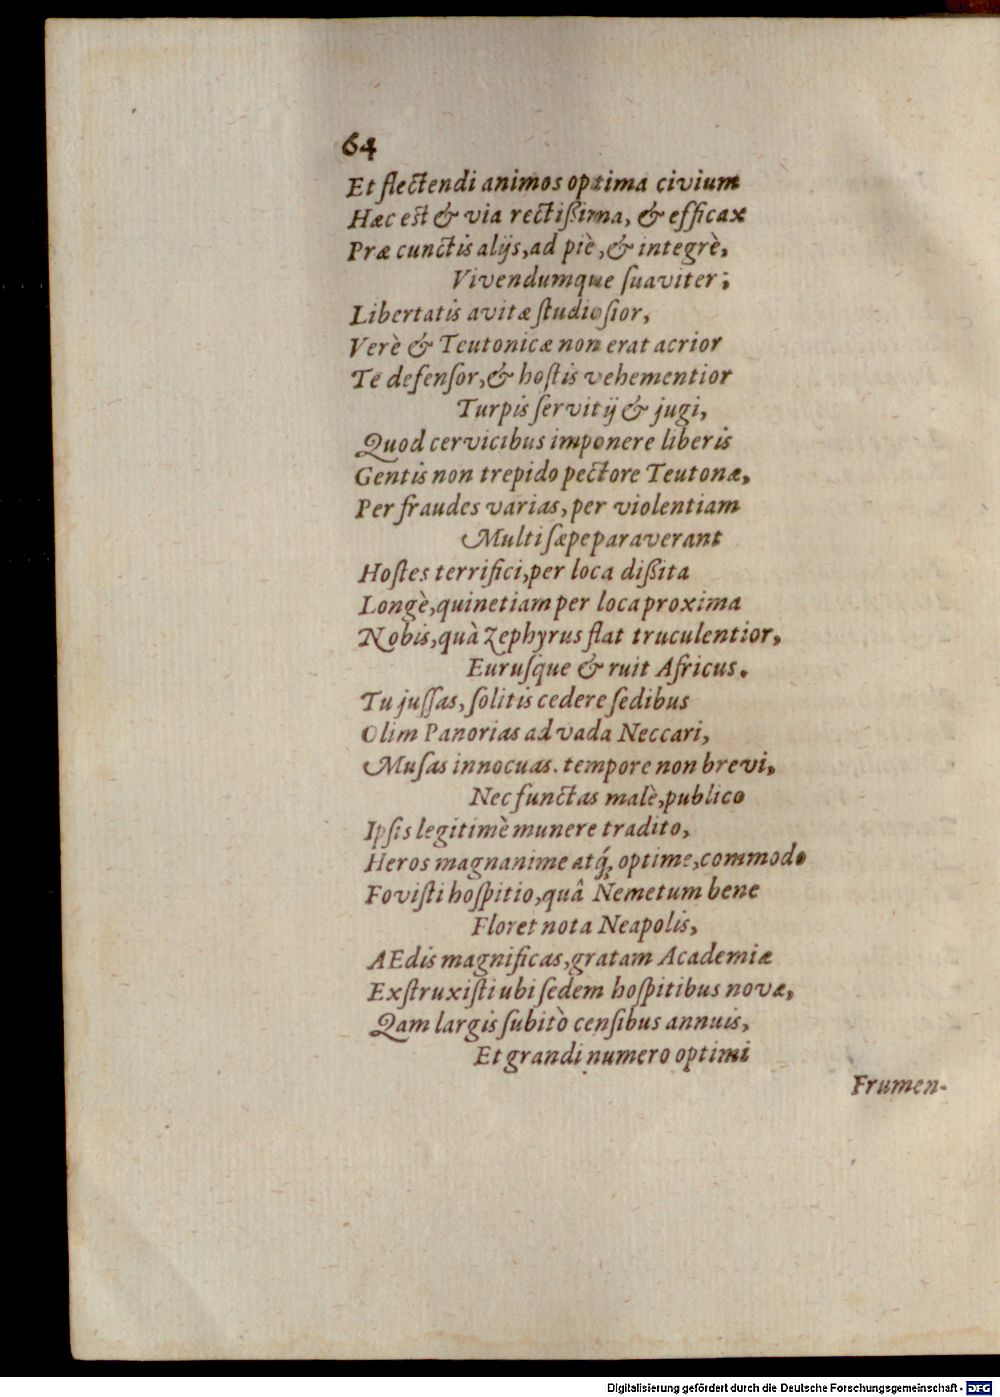 64
Et flectendi animos optima civium
Hæc est & via rectißima, & efficax
Præ cunctis alijs, ad piè, & integrè,
Vivendumque ſuaviter;
Libertatis avitæ ſtudioſior,
Verè & Teutonicæ non erat acrior
Te defenſor, & hoſtis vehementior
Turpis ſervitij & jugi,
Quod cervicibus imponere liberis
Gentis non trepido pectore Teutonæ,
Per fraudes varias, per violentiam
Multi ſæpe paraverant
Hoſtes terrifici, per loca dißita
Longè, quinetiam per loca proxima
Nobis, quà Zephyrus flat truculentior,
Euruſque & ruit Africus.
Tu juſſas, ſolitis cedere ſedibus
Olim Panorias ad vada Neccari,
Muſas innocuas. tempore non brevi,
Nec functas malè, publico
Ipſis legitimè munere tradito,
Heros magnanime atq́, optime, commodo
Foviſti hoſpitio, quâ Nemetum bene
Floret nota Neapolis,
AEdis magnificas, gratam Academiæ
Exſtruxiſti ubi ſedem hoſpitibus novæ,
Qam largis ſubitò cenſibus annuis,
Et grandi numero optimi
Frumen-
Digitalisierung gefördert durch die Deutsche Forschungsgemeinschaft - DFG